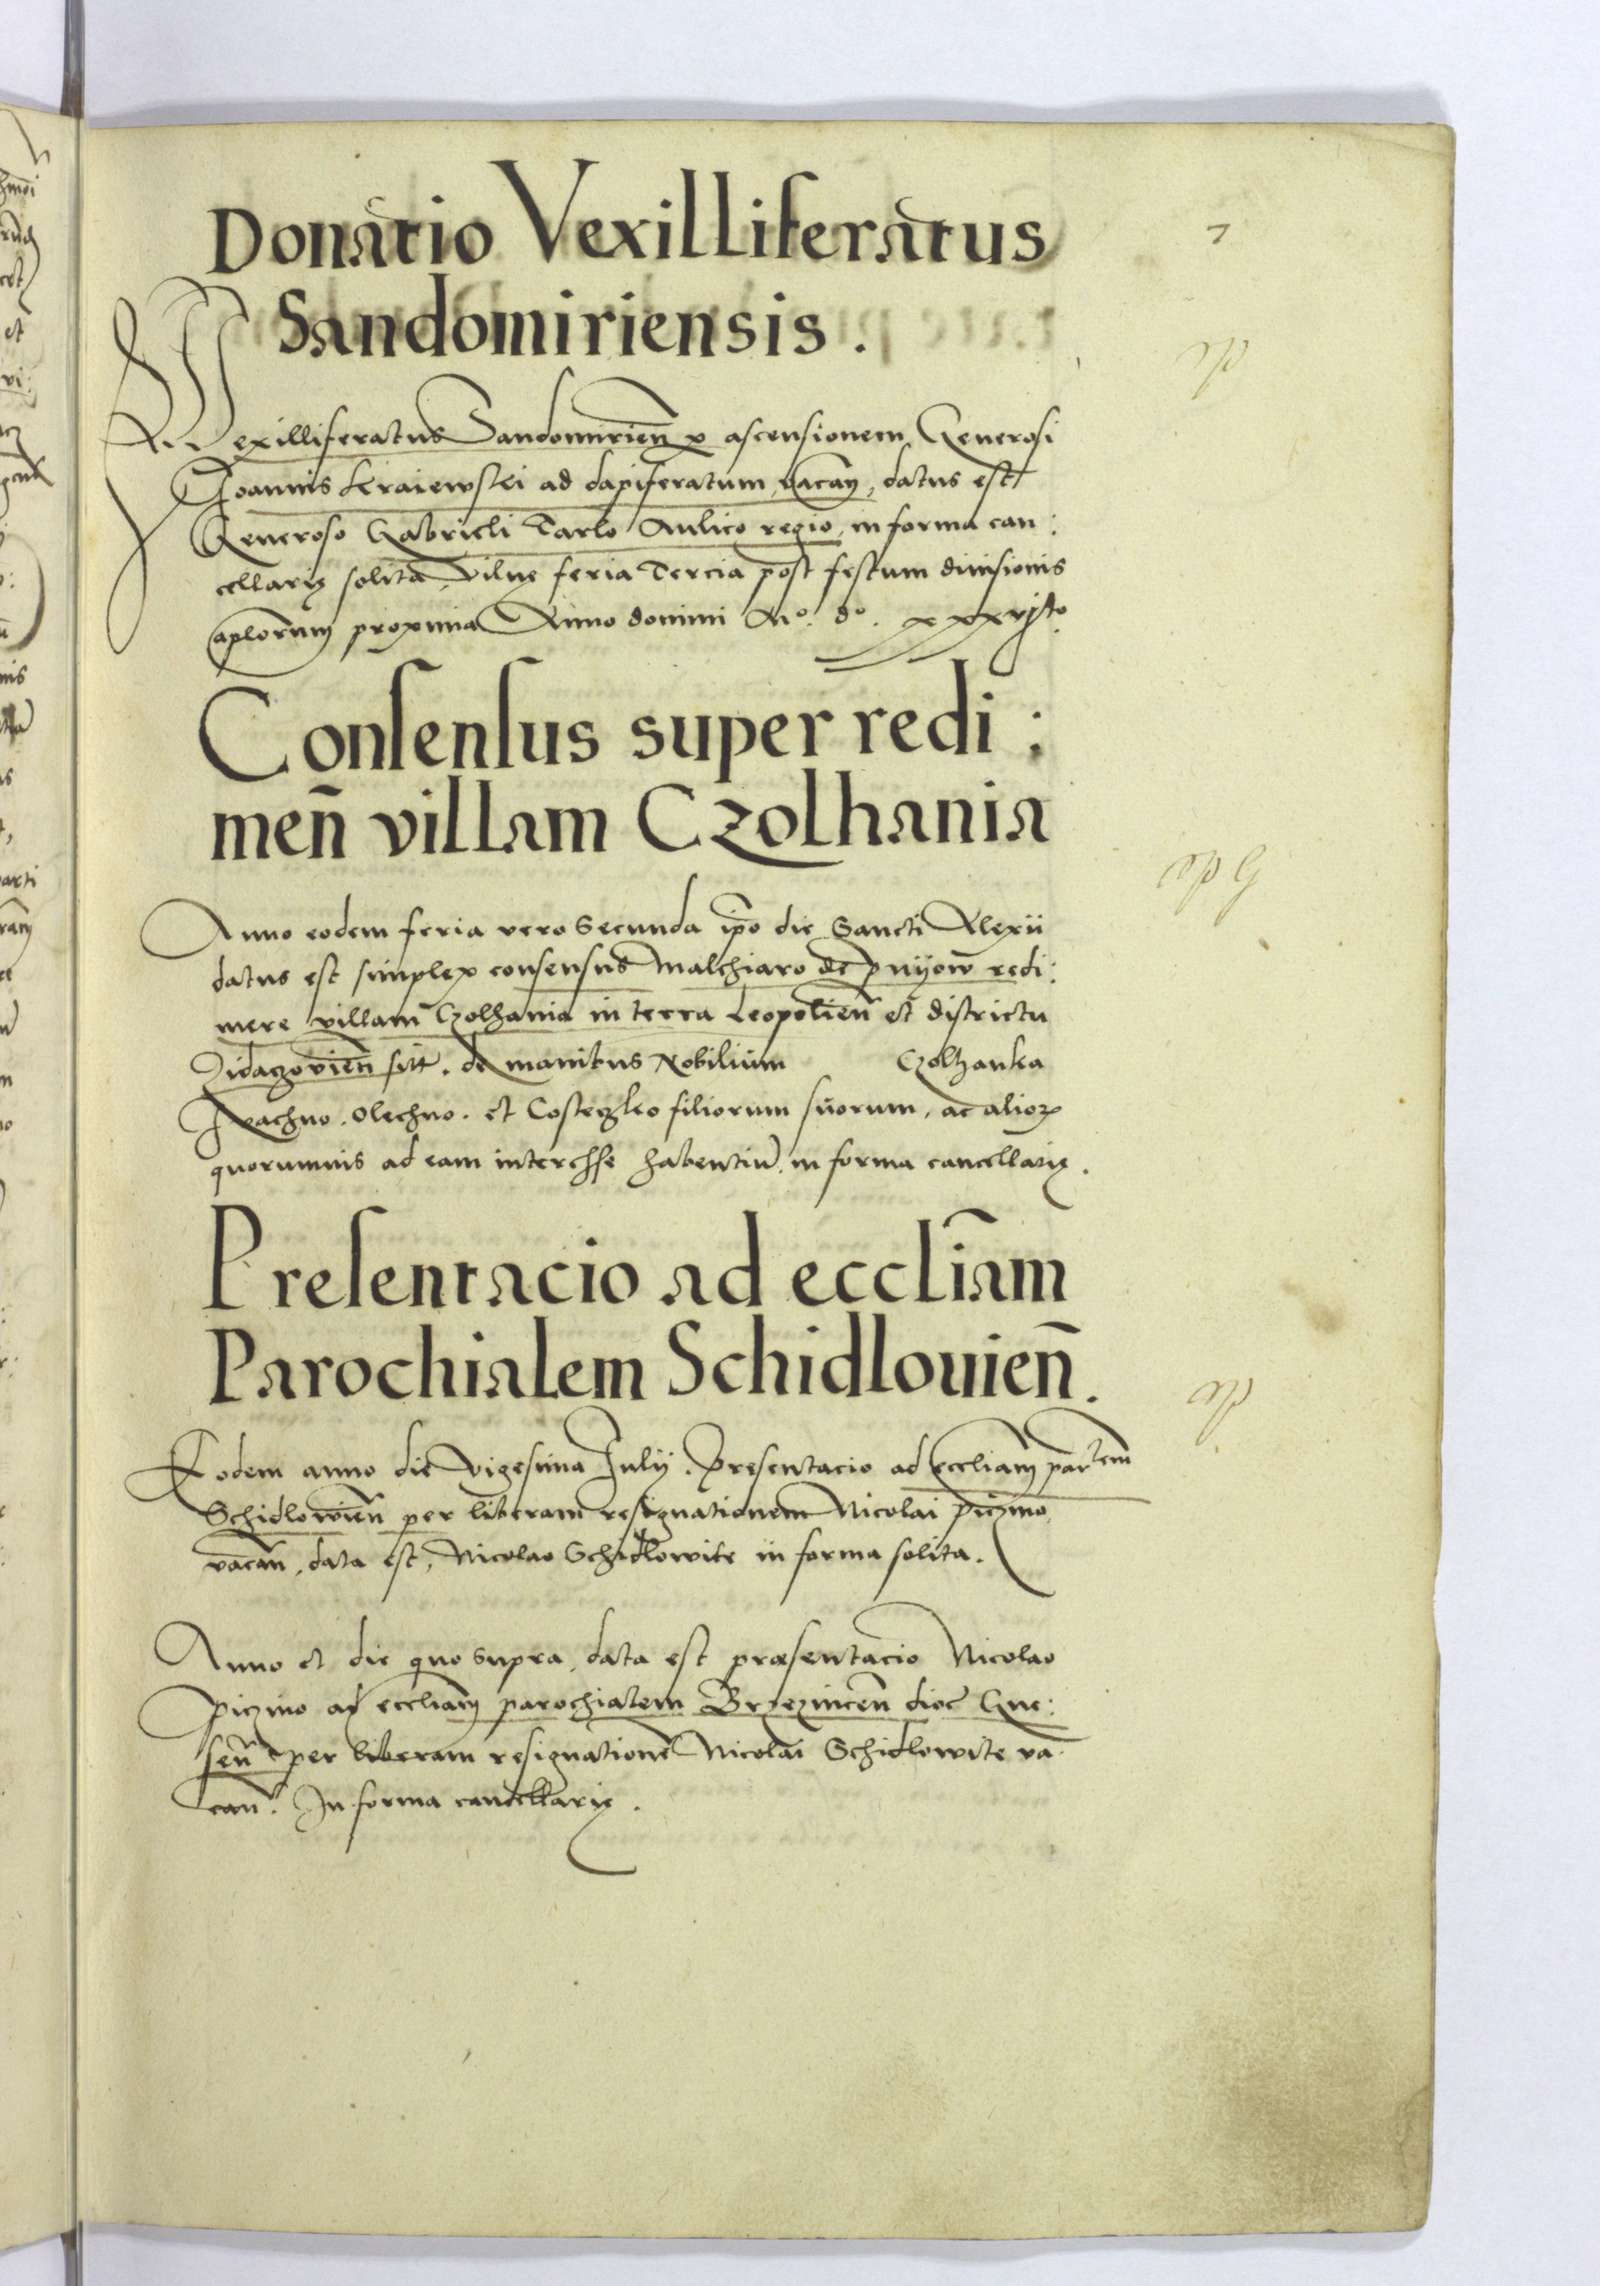 Donatio Vexilliferatus
7
Sandomiriensis.
Vexilliferatus Sandomirien̄ p ascensionem Generosi
Joannis Kraiewski ad dapiferatum vacan̄, datus est
Generoso Gabrieli Tarlo Aulico regio, in forma can:
cellarię solita, Vilnę feria Tercia post festum divisionis
ap̄lorum proxima Anno domini Mº. dº. xxxvjto
Consensus super redi:
men̄ villam Czolhania
Anno eodem feria vero Secunda ip̄o die Sancti Alexii
datus est simplex consensus Malchiaro de pnijow redi:
mere villam Czolhania in terra Leopolien̄ et districtu
Zidaczovien̄ sitt. de manibus Nobilium Czolhanka
Ivachno. Olechno. et Costeczko filiorum suorum, ac alioꝝ
quorumvis ad eam interesse habentiū. in forma cancellarię.
Presentacio ad eccl̄iam
Parochialem Schidlouien̄.
Eodem anno die Vigesima Julij. Presentacio ad eccliam̄ par̄lem
Schidlowien̄ per liberam resignationem Nicolai piczmo
vacan̄, data est, Nicolao Schidlowite in forma solita.
Anno et die quo supra, data est præsentacio Nicolao
piczmo ad eccliam̄ parochialem Brzezincen̄ dioc̄ Gne:
sen̄ per liberam resignationē Nicolai Schidlowite va
can̄. In forma cancellarię.